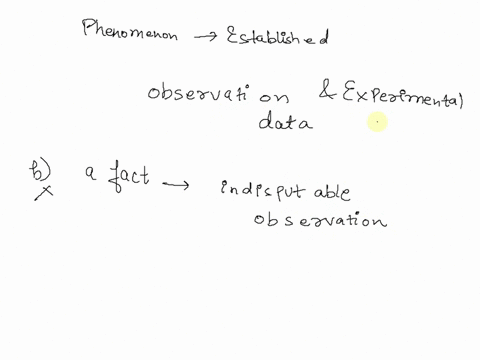 Phenomenon → Established
observation & Experimental
data
b) a fact → indisputable
x
observation